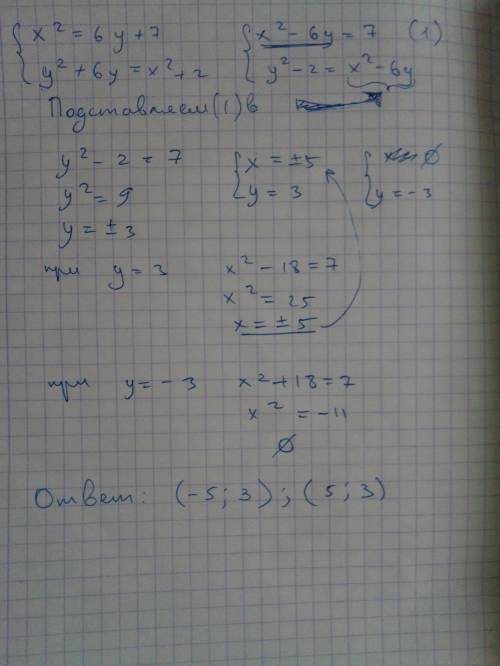 { x² = 6y + 7    { x² - 6y = 7    (1)
{ y² + 6y = x² + 2    { y² - 2 = x² - 6y
Подставляем (1) в
y² - 2 = 7    { x = ±5    { ∅
y² = 9    { y = 3    { y = -3
y = ± 3
при y = 3    x² - 18 = 7
x² = 25
x = ± 5
при y = - 3    x² + 18 = 7
x² = -11
∅
Ответ: (-5; 3); (5; 3)